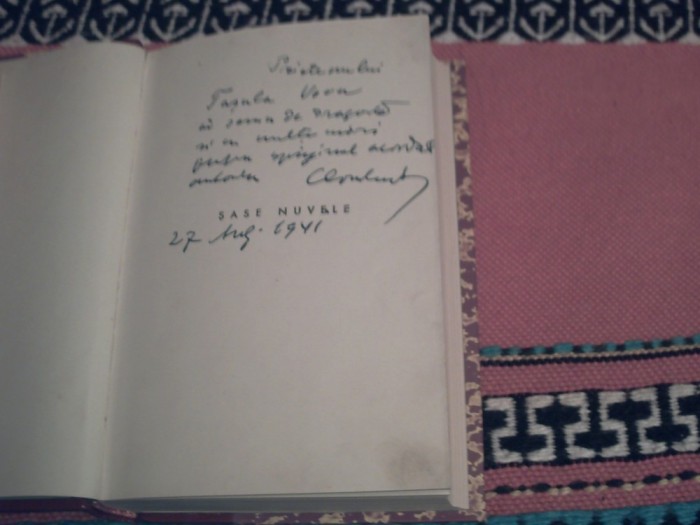 Prietenului
Tașula Vova
cu semn de dragoste
și cu multe mări
pentru sprijinul acordat
autorului
ȘASE NUVELE
27 Aug. 1941